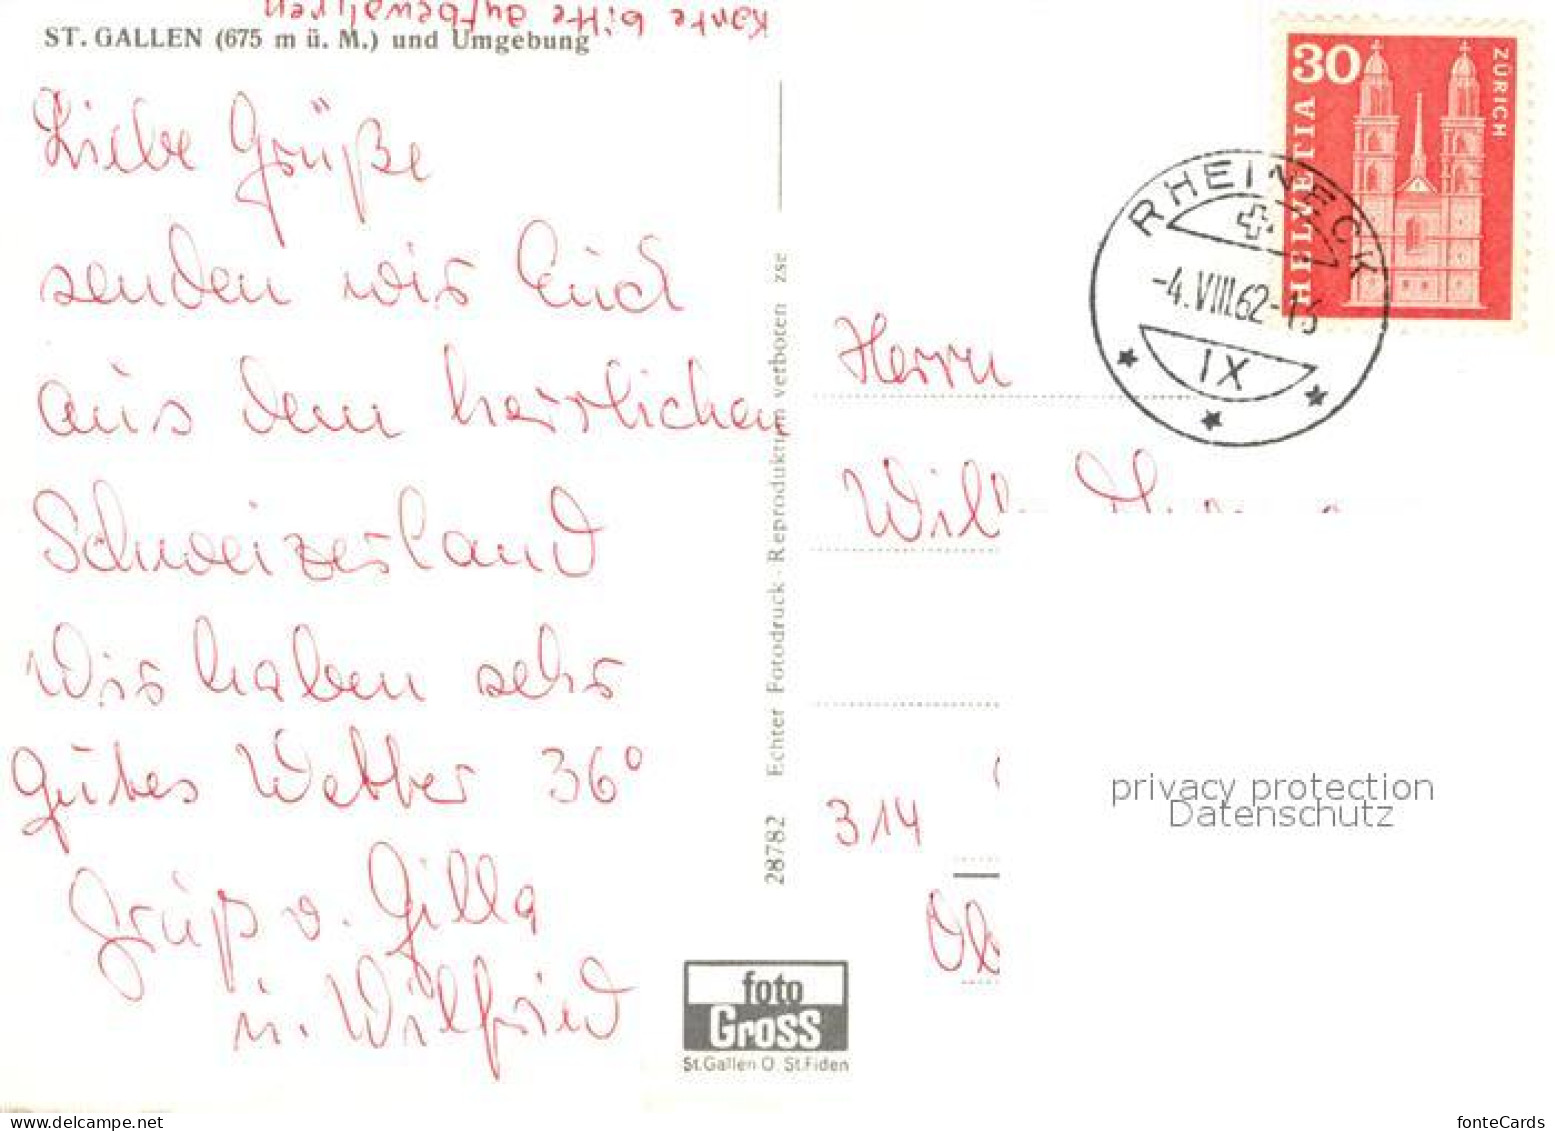 Karte bitte aufbewahren
ST. GALLEN (675 m ü. M.) und Umgebung
Liebe Grüße
senden wir Euch
aus dem herrlichen
Schweizerland
Wir haben sehr
gutes Wetter 36°
Gruß v. Gilla
u. Wilfried
28782 Echter Fotodruck · Reproduktion verboten zse
foto
Gross
St.Gallen O. St.Fiden
30
HELVETIA
ZÜRICH
RHEINECK
-4.VIII.62-
IX
Herrn
314
privacy protection
Datenschutz
www.delcampe.net
fonteCards